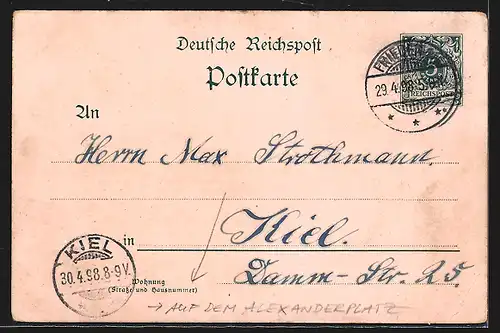 Deutsche Reichspost
Postkarte
5
REICHSPOST
29.4.98.5
An
Herrn Max Strothmann.
in Kiel.
KIEL
30.4.98.8-9V.
Wohnung
(Straße und Hausnummer)
Damm-Str. 25.
→ AUF DEM ALEXANDERPLATZ